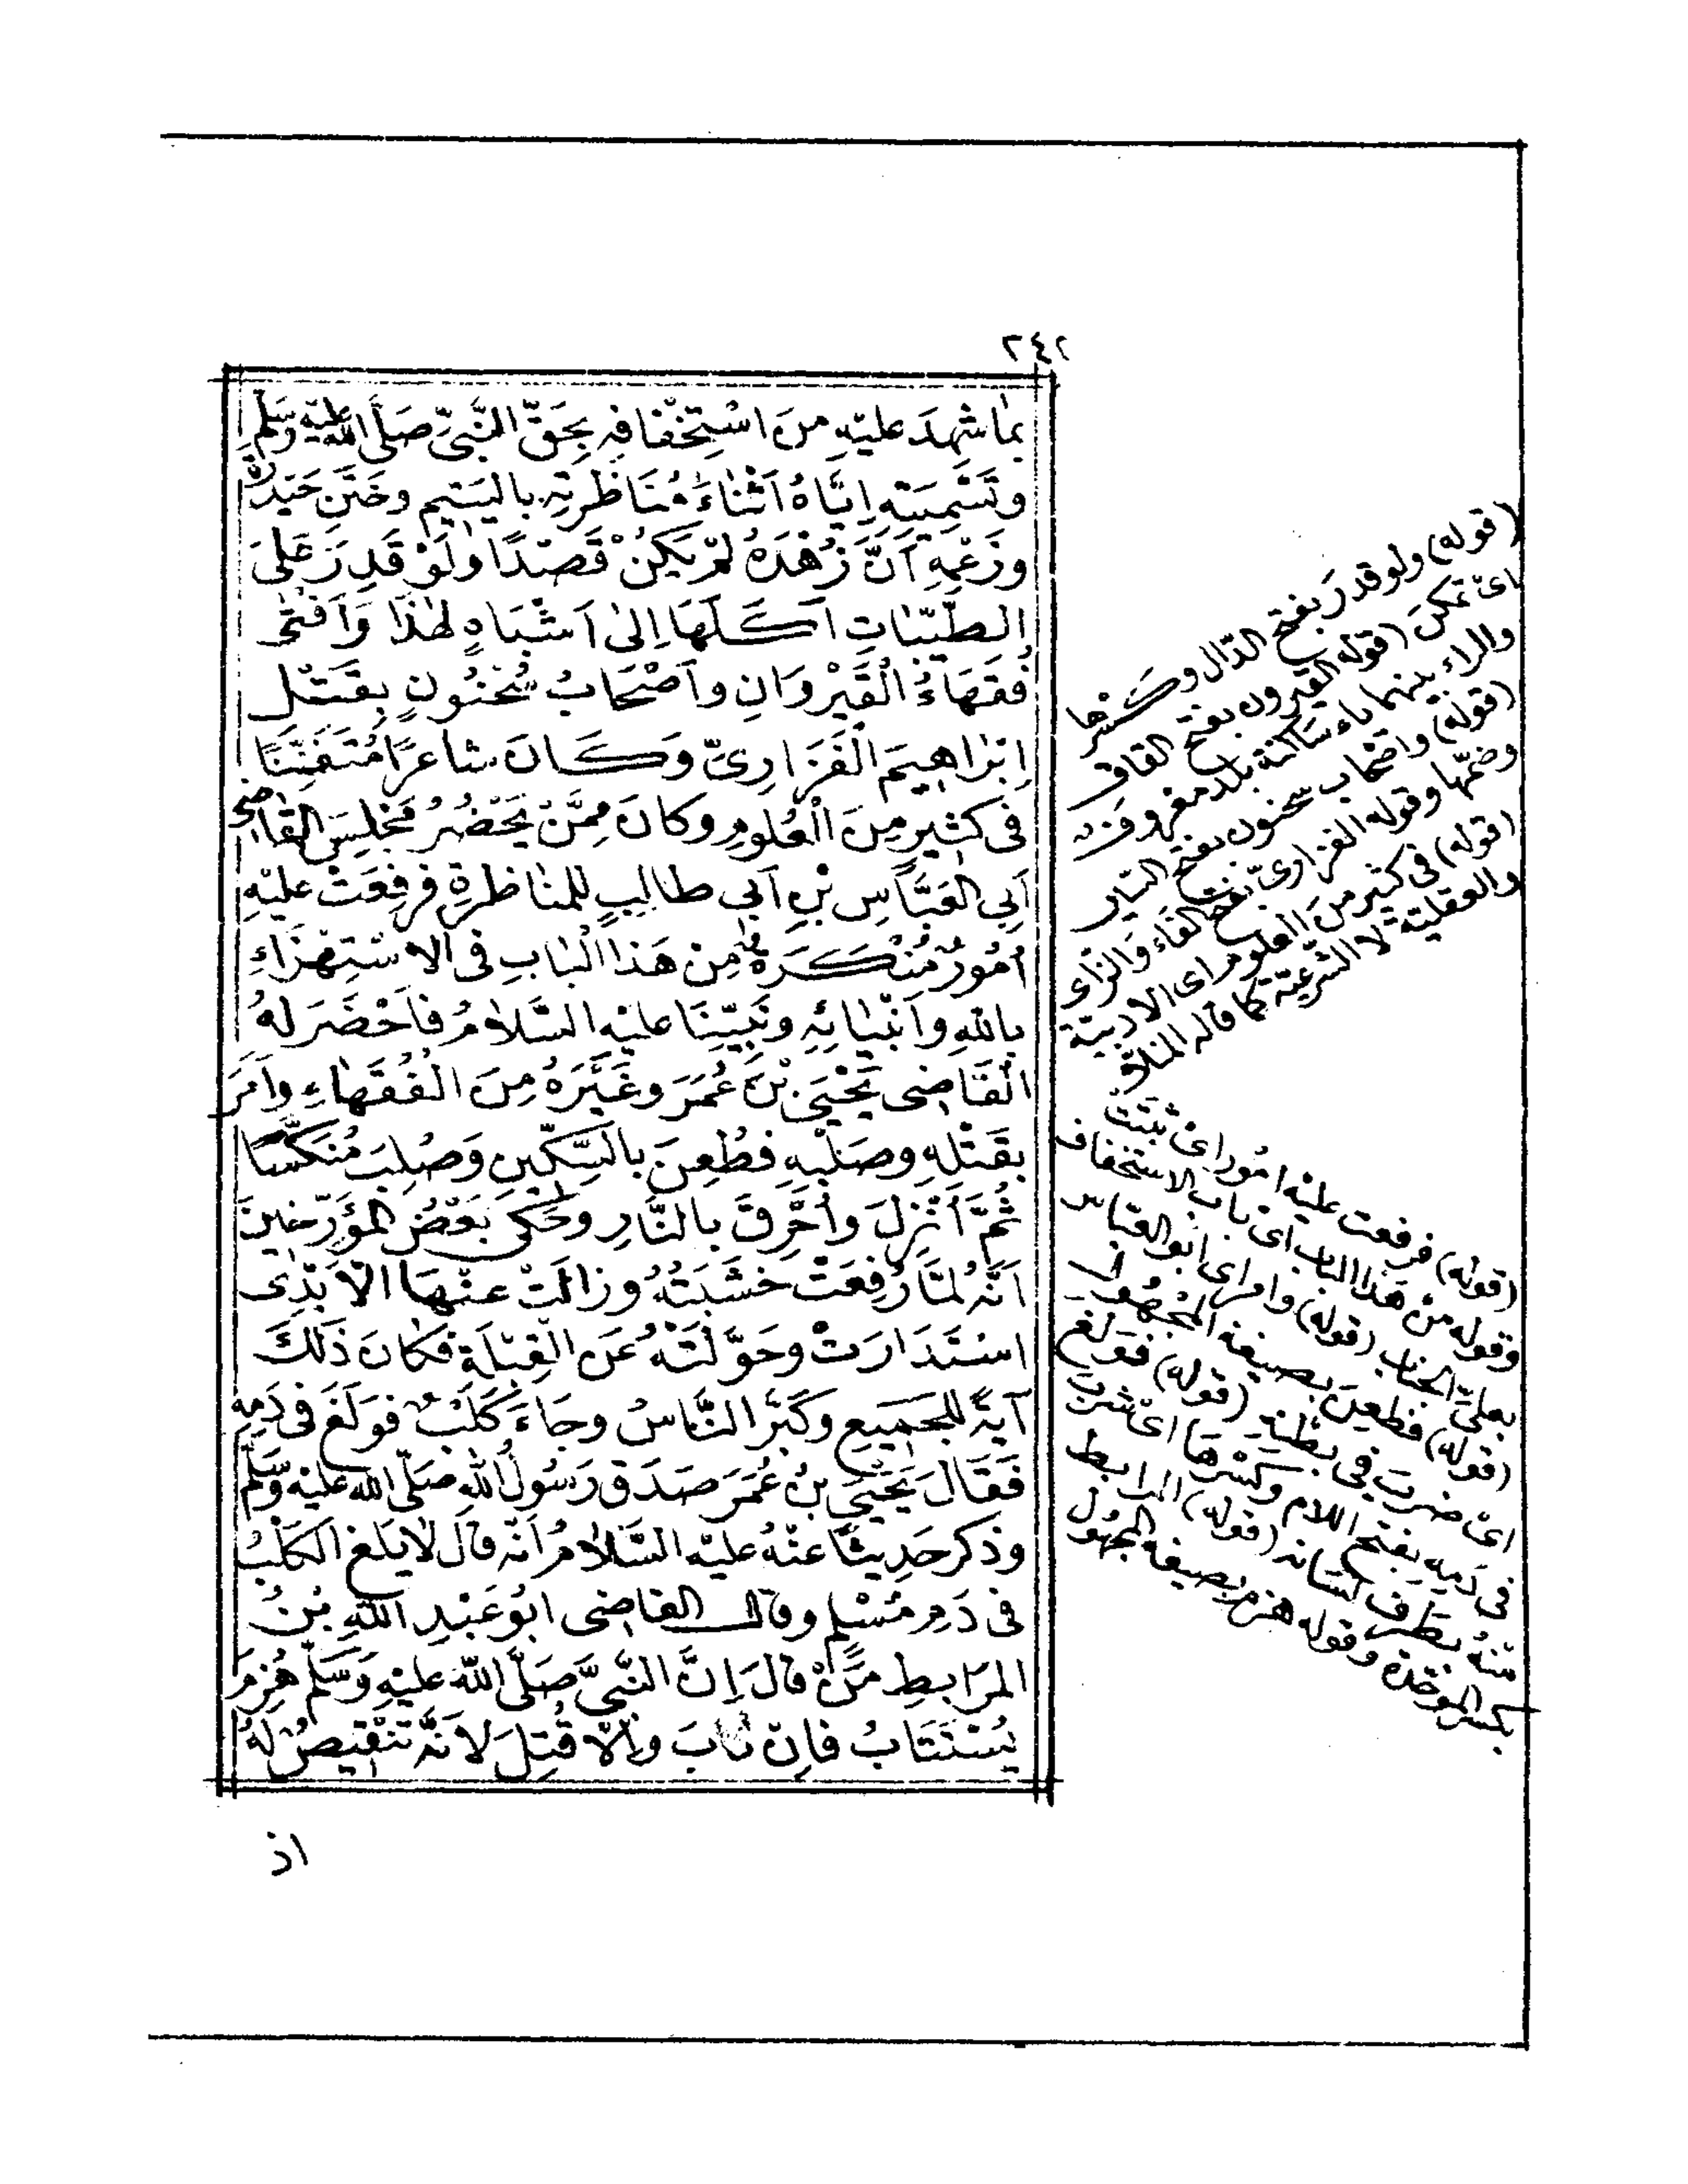 ٢٤٢
بِمَا شُهِدَ عَلَيْهِ مِنَ اسْتِخْفَافِهِ بِحَقِّ النَّبِيِّ صَلَّى اللهُ عَلَيْهِ وَسَلَّمَ
وَتَسْمِيَتِهِ اِيَّاهُ اَثْنَاءَ مُنَاظَرَتِهِ بِالْيَتِيمِ وَخَتَنِ حَيْدَرَةَ
وَزَعْمِهِ اَنَّ زُهْدَهُ لَمْ يَكُنْ قَصْدًا وَلَوْ قَدِرَ عَلَى
الطَّيِّبَاتِ اَكَلَهَا اِلَى اَشْبَاهٍ لِهٰذَا وَاَفْتَى
فُقَهَاءُ الْقَيْرَوَانِ وَاَصْحَابُ سُحْنُونٍ بِقَتْلِ
اِبْرَاهِيمَ الْفَزَارِيِّ وَكَانَ شَاعِرًا مُتَفَنِّنًا
فِى كَثِيرٍ مِنَ الْعُلُومِ وَكَانَ مِمَّنْ يَحْضُرُ مَجْلِسَ الْقَاضِى
اَبِي الْعَبَّاسِ بْنِ اَبِي طَالِبٍ لِلْمُنَاظَرَةِ فَرُفِعَتْ عَلَيْهِ
اُمُورٌ مُنْكَرَةٌ مِنْ هَذَا الْبَابِ فِى الْاِسْتِهْزَاءِ
بِاللهِ وَاَنْبِيَائِهِ وَنَبِيِّنَا عَلَيْهِ السَّلَامُ فَاَحْضَرَ لَهُ
الْقَاضِى يَحْيَى بْنَ عُمَرَ وَغَيْرَهُ مِنَ الْفُقَهَاءِ وَاَمَرَ
بِقَتْلِهِ وَصَلْبِهِ فَطُعِنَ بِالسِّكِّينِ وَصُلِبَ مُنَكَّسًا
ثُمَّ اُنْزِلَ وَاُحْرِقَ بِالنَّارِ وَحَكَى بَعْضُ الْمُؤَرِّخِينَ
اَنَّهُ لَمَّا رُفِعَتْ خَشَبَتُهُ وَزَالَتْ عَنْهَا الْاَيْدِى
اسْتَدَارَتْ وَحَوَّلَتْهُ عَنِ الْقِبْلَةِ فَكَانَ ذَلِكَ
آيَةً لِلْجَمِيعِ وَكَبَّرَ النَّاسُ وَجَاءَ كَلْبٌ فَوَلَغَ فِى دَمِهِ
فَقَالَ يَحْيَى بْنُ عُمَرَ صَدَقَ رَسُولُ اللهِ صَلَّى اللهُ عَلَيْهِ وَسَلَّمَ
وَذَكَرَ حَدِيثًا عَنْهُ عَلَيْهِ السَّلَامُ اَنَّهُ قَالَ لَا يَلَغُ الْكَلْبُ
فِى دَمِ مُسْلِمٍ وَقَالَ الْقَاضِى اَبُو عَبْدِ اللهِ بْنُ
الْمُرَابِطِ مَنْ قَالَ اِنَّ النَّبِيَّ صَلَّى اللهُ عَلَيْهِ وَسَلَّمَ هُزِمَ
يُسْتَتَابُ فَاِنْ تَابَ وَاِلَّا قُتِلَ لِاَنَّهُ تَنَقُّصٌ لَهُ
اذ
(قوله) ولو قدر بفتح الدّال وكسرها
اى تمكن (قوله القيرون بفتح القاف
والراء بينهما ياء ساكنة بلد معروفة
(قوله) واصحاب سحنون بفتح السّين
وضمّها وقوله الفزارىّ بفتح الفاء والزاى
(قوله) فى كثير من العلوم اى الادبيّة
والعقليّة لا الشرعيّة كما قاله
(قوله) فرفعت عليه امور اى ثبتت
وقوله من هذا الباب اى باب الاستخفاف
بعلىّ الجناب (قوله) وامر اى ابو العبّاس
(قوله) فطعن بصيغة المجهول
اى ضرب فى بطنه (قوله) فولغ
فى دمه بفتح اللام وكسرها اى شرب
منه بطرف لسانه (قوله) المرابط
بكسر الموحّدة وقوله هزم بصيغة المجهول